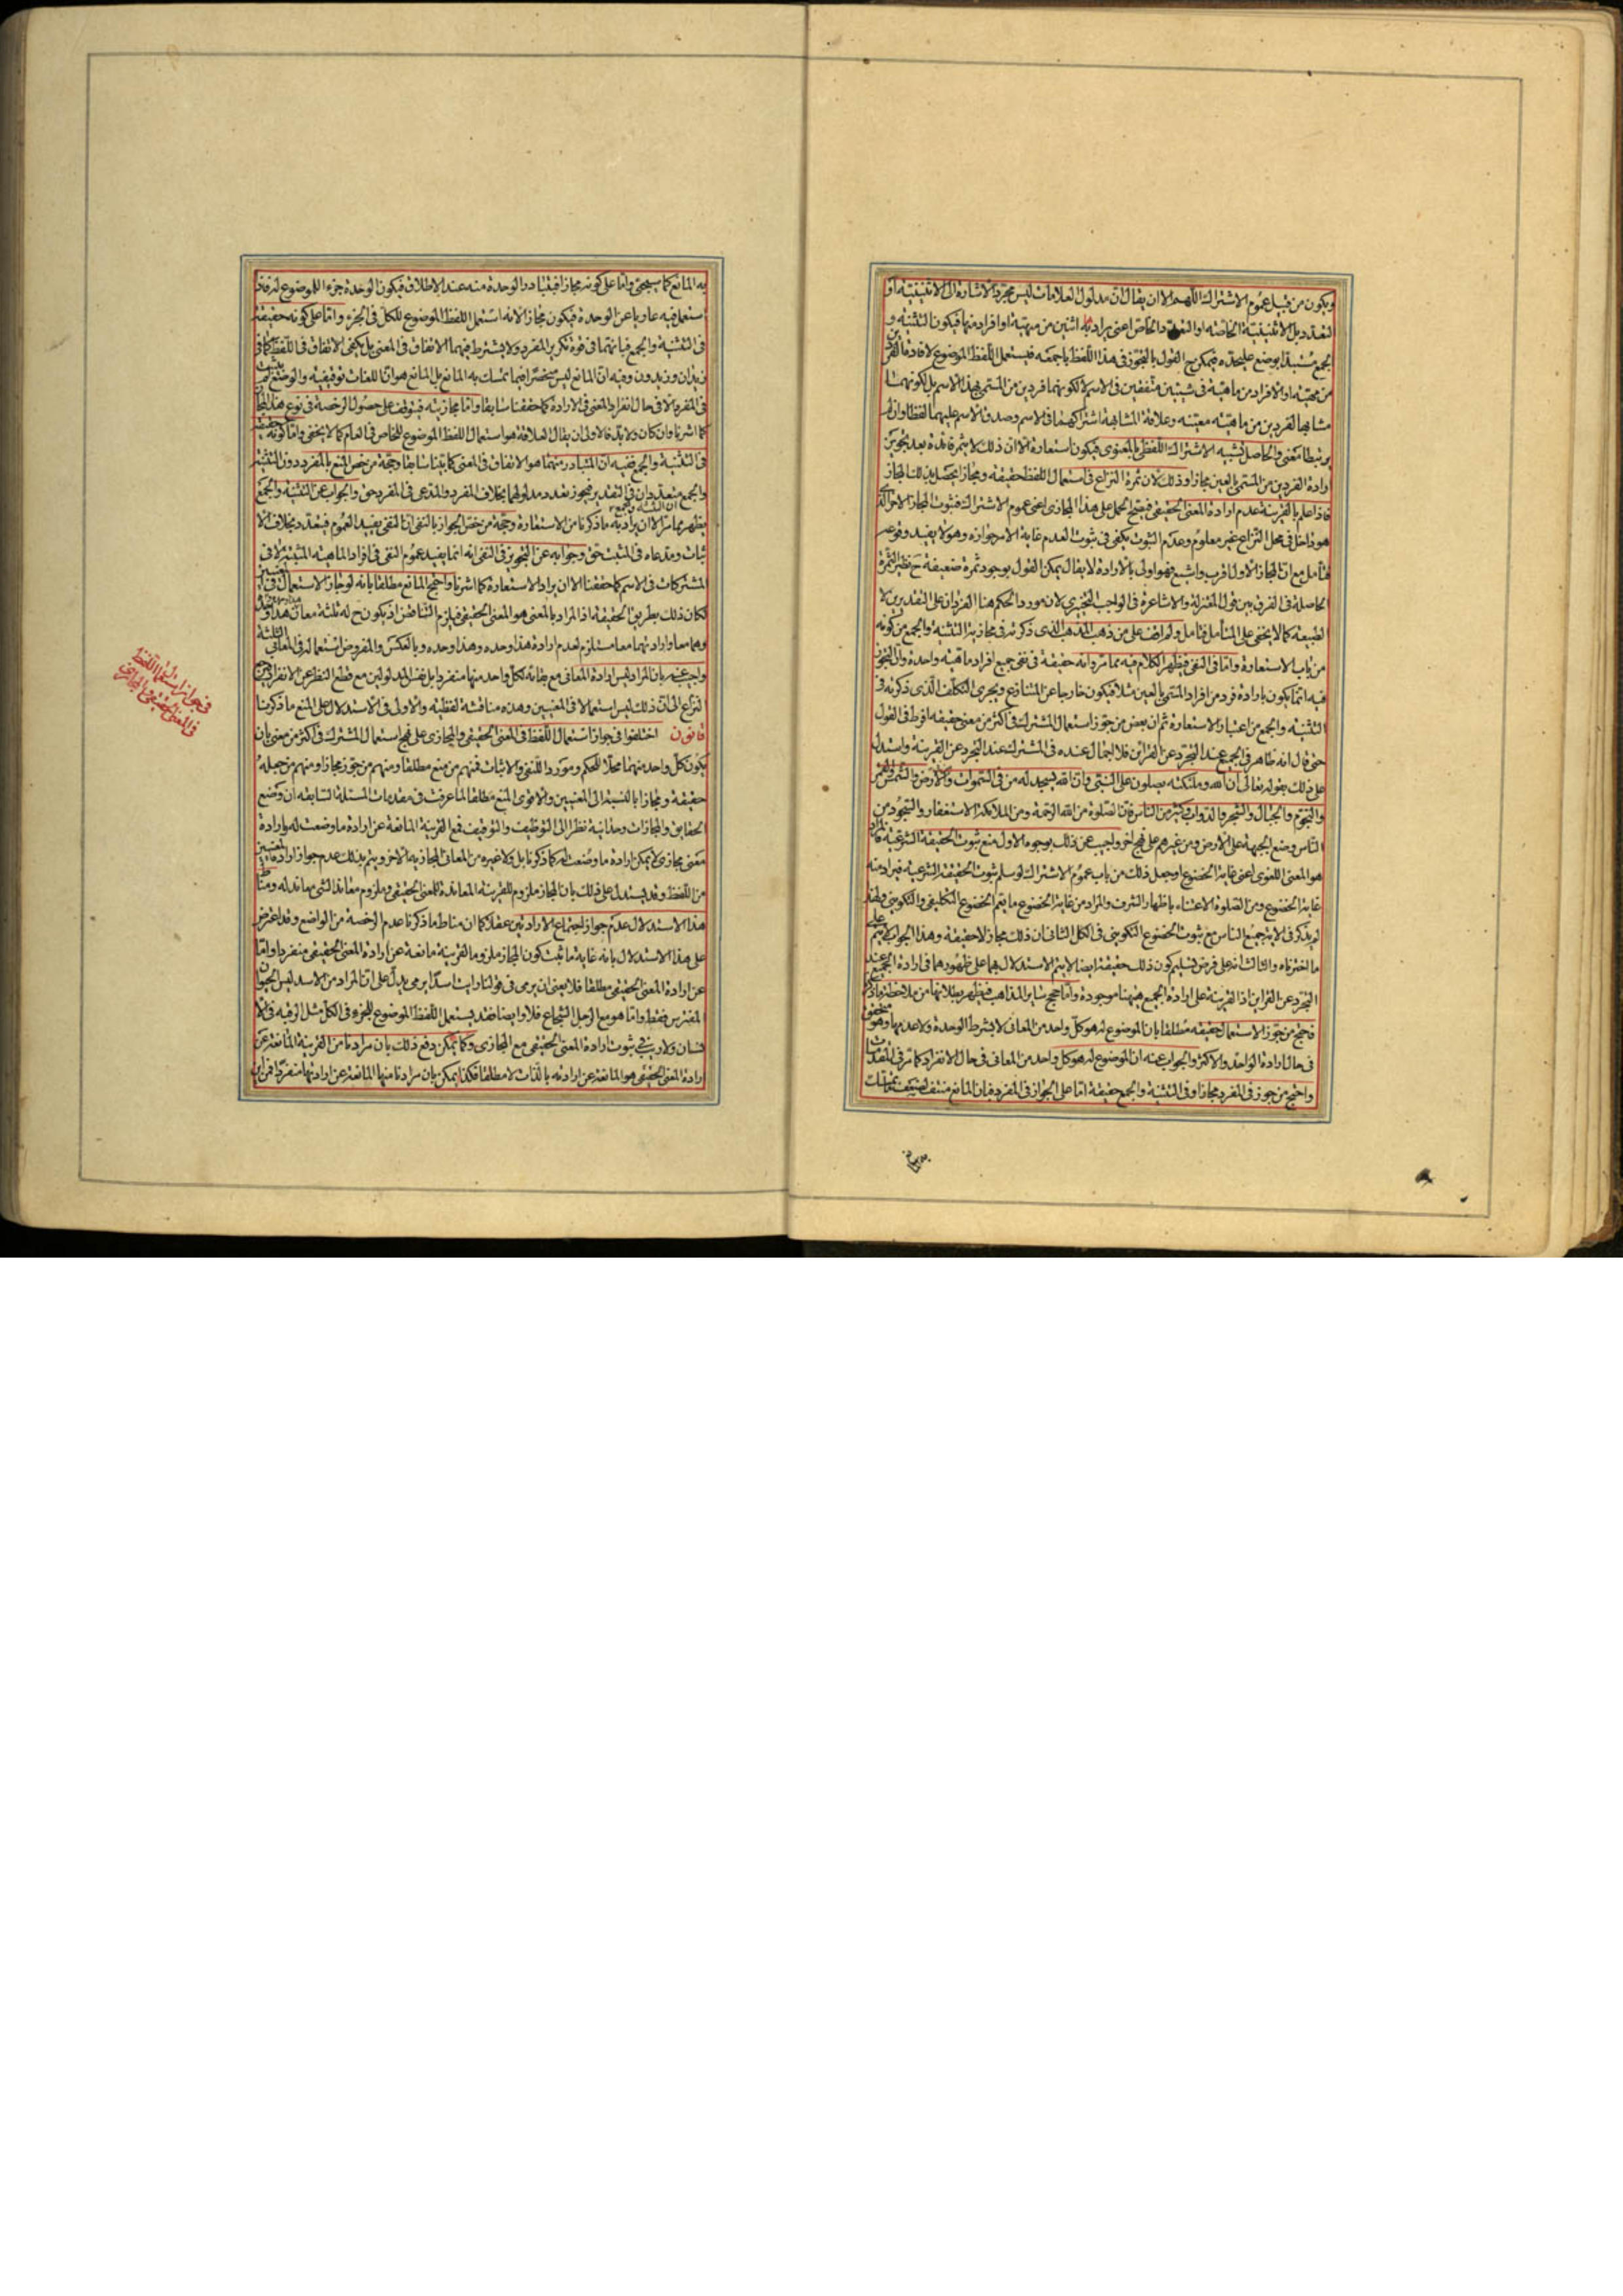 ويكون من قبيل عموم الاشتراك اللهم الا ان يقال ان مدلول العلامات ليس مجرد الاشارة الى الاثنينية او
التعدد بل الاثنينية الخاصة او التعدد الخاص اعنى يراد به اثنين من مهية او افراد منها فيكون التثنية و
الجمع مستبدا بوضع عليحده فيمكن ح القول بالتجوز فى هذا اللفظ باجمعه فيستعمل اللفظ الموضوع لافادة الفردين
من مهية او الافراد من ماهية فى شيئين متفقين فى الاسم لا لكونهما فردين من المسمى بهذا الاسم بل لكونهما
مشابها لفردين من ماهية معينة وعلاقة المشابهة اشتراكهما فى الاسم وصدق الاسم عليهما لفظا وان لم
يرتبطا معنى والحاصل تشبيه الاشتراك اللفظى بالمعنوى فيكون استعارة الا ان ذلك لا يثمر فائدة بعد تجويز
ارادة الفردين من المسمى بالعين مجازا وذلك لان ثمرة النزاع فى استعمال اللفظ حقيقة ومجازا يحصل بذلك المجاز
فاذا علم بالقرينة عدم ارادة المعنى الحقيقى فيصح الحمل على هذا المجازى اعنى عموم الاشتراك فثبوت المجاز الاخر الذى
هو داخل فى محل النزاع غير معلوم وعدم الثبوت يكفى فى ثبوت العدم غاية الامر جوازه وهو لا يفيد وقوعه
فتأمل مع ان المجاز الاول اقرب واشيع فهو اولى بالارادة لا يقال يمكن القول بوجود ثمرة ضعيفة ح نظير الثمرة
الحاصلة فى الفرق بين قول المعتزلة والاشاعرة فى الواجب التخييرى لان مورد الحكم هنا الفردان على التقديرين لا
الطبيعة كما لا يخفى على المتأمل فتأمل ولم اقف على من ذهب المذهب الذى ذكرته فى مجازية التثنية والجمع من كونه
من باب الاستعارة واما فى النفى فيظهر الكلام فيه مما مر وانه حقيقة فى نفى جميع افراد ماهية واحدة وان التجوز
فيه انما يكون بارادة فرد من افراد المسمى بالعين مثلا فيكون خارجا عن المتنازع ويجرى التكلف الذى ذكرته فى
التثنية والجمع من اعتبار الاستعارة ثم ان بعض من جوز استعمال المشترك فى اكثر من معنى حقيقة افرط فى القول
حتى قال انه ظاهر فى الجميع عند التجرد عن القرائن فلا اجمال عنده فى المشترك عند التجرد عن القرينة واستدل
على ذلك بقوله تعالى ان الله وملئكته يصلون على النبى وان الله يسجد له من فى السموات والارض والشمس والقمر
والنجوم والجبال والشجر والدواب وكثير من الناس فان الصلوة من الله الرحمة ومن الملائكة الاستغفار والسجود من
الناس وضع الجبهة على الارض ومن غيرهم على نهج اخر واجيب عن ذلك بوجوه الاول منع ثبوت الحقيقة الشرعية
هو المعنى اللغوى اعنى غاية الخضوع او جعل ذلك من باب عموم الاشتراك لو سلم ثبوت الحقيقة الشرعية فيراد منه
غاية الخضوع ومن الصلوة الاعتناء باظهار الشرف والمراد من غاية الخضوع ما يعم الخضوع التكليفى والتكوينى ولهذا
لم يذكر فى الاية جميع الناس مع ثبوت الخضوع التكوينى فى الكل الثانى ان ذلك مجاز لا حقيقة وهذا الجواب يتم على
ما اخترناه والثالث انه على فرض تسليم كون ذلك حقيقة ايضا لا يتم الاستدلال بهما على ظهورهما فى ارادة الجميع عند
التجرد عن القراين اذ القرينة على ارادة الجميع ههنا موجودة واما حجج ساير المذاهب فيظهر بطلانها من ملاحظة ما ذكر
فحجة من جوز الاستعمال حقيقة مطلقا بان الموضوع له هو كل واحد من المعانى لا بشرط الوحدة ولا عدمها وهو متحقق
فى حال ارادة الواحد والاكثر والجواب عنه ان الموضوع له هو كل واحد من المعانى فى حال الانفراد كما مر فى المقدمات
واحتج من جوز فى المفرد مجازا وفى التثنية والجمع حقيقة اما على الجواز فى المفرد فبان المانع منتف لضعف تمسكات
به المانع كما سيجئ واما على كونه مجازا فبتبادر الوحدة منه عند الاطلاق فيكون الوحدة جزء للموضوع له فاذا
استعمل فيه عاريا عن الوحدة فيكون مجازا لانه استعمل اللفظ الموضوع للكل فى الجزء واما على كونه حقيقة
فى التثنية والجمع فبانهما فى قوة تكرير المفرد ولا يشترط فيهما الاتفاق فى المعنى بل يكفى الاتفاق فى اللفظ كما فى
زيدان وزيدون وفيه ان المانع ليس منحصرا فيما تمسك به المانع بل المانع هو ان اللغات توقيفية والوضع لم يثبت
فى المفرد الا فى حال انفراد المعنى فى الارادة كما حققنا سابقا واما مجازيته فيتوقف على حصول الرخصة فى نوع هذا المجاز
كما اشرنا وان كان ولابد فالاولى ان يقال العلاقة هو استعمال اللفظ الموضوع للخاص فى العام كما لا يخفى واما كونه حقيقة
فى التثنية والجمع ففيه ان المتبادر منهما هو الاتفاق فى المعنى كما بينا سابقا وحجة من خص المنع بالمفرد دون التثنية
والجمع ان التثنية والجمع متعددان فى التقدير فيجوز تعدد مدلولهما بخلاف المفرد والمدعى فى المفرد حق والجواب عن التثنية والجمع
يظهر مما مر الا ان يراد به ما ذكرنا من الاستعارة وحجة من خص الجواز بالنفى ان النفى يفيد العموم فيتعدد بخلاف الا
ثبات ومدعاه فى المثبت حق وجوابه عن التجويز فى النفى انه انما يفيد عموم النفى فى افراد الماهية المثبتة لا فى
المشتركات فى الاسم كما حققنا الا ان يراد الاستعارة كما اشرنا واحتج المانع مطلقا بانه لو جاز الاستعمال فى معنيين
لكان ذلك بطريق الحقيقة اذ المراد بالمعنى هو المعنى الحقيقى فيلزم التناقض اذ يكون ح له ثلثة معان هذا وحده وهذا وحده
وهما معا وارادتهما معا مستلزم لعدم ارادة هذا وحده وهذا وحده وبالعكس والمفروض استعماله فى المعانى الثلثة
واجيب عنه بان المراد ليس ارادة المعانى مع بقائه لكل واحد منها منفردا بل نفس المدلولين مع قطع النظر عن الانفراد فيرجع
النزاع الى ان ذلك ليس استعمالا فى المعنيين وهذه مناقشة لفظية والاولى فى الاستدلال على المنع ما ذكرنا
قانون اختلفوا فى جواز استعمال اللفظ فى المعنى الحقيقى والمجازى على نهج استعمال المشترك فى اكثر من معنى بان
يكون كل واحد منهما محلا للحكم وموردا للنفى والاثبات فمنهم من منع مطلقا ومنهم من جوز مجازا ومنهم من جعله
حقيقة ومجازا بالنسبة الى المعنيين والاقوى المنع مطلقا لما عرفت فى مقدمات المسئلة السابقة ان وضع
الحقايق والمجازات وحدانية نظرا الى التوظيف والتوقيف فمع القرينة المانعة عن ارادة ما وضعت له وارادة
معنى مجازى لا يمكن ارادة ما وضعت له كما ذكرنا بل ولا غيره من المعانى المجازية الاخر ويتم بذلك عدم جواز ارادة المعنيين
من اللفظ وقد يستدل على ذلك بان المجاز ملزوم للقرينة المعاندة للمعنى الحقيقى وملزوم معاند الشى معاند له ومناط
هذا الاستدلال عدم جواز اجتماع الارادتين عقلا كما ان مناط ما ذكرنا عدم الرخصة من الواضع وقد اعترض
على هذا الاستدلال بانه غاية ما ثبت كون المجاز ملزوما لقرينة مانعة عن ارادة المعنى الحقيقى منفردا واما
عن ارادة المعنى الحقيقى مطلقا فلا يعنى ان يرمى فى قولنا رايت اسدا يرمى يدل على ان المراد من الاسد ليس الحيوان
المفترس فقط واما هو مع الرجل الشجاع فلا وايضا فقد يستعمل اللفظ الموضوع للجزء فى الكل مثل الرقبة فى الا
نسان ولا ريب فى ثبوت ارادة المعنى الحقيقى مع المجازى وكما يمكن دفع ذلك بان مرادنا من القرينة المانعة عن
ارادة المعنى الحقيقى هو المانعة عن ارادته بالذات لا مطلقا فكذا يمكن بان مرادنا منها المانعة عن ارادتها منفردا فمن اين
فى جواز استعمال اللفظ
فى المعنى الحقيقى والمجازى